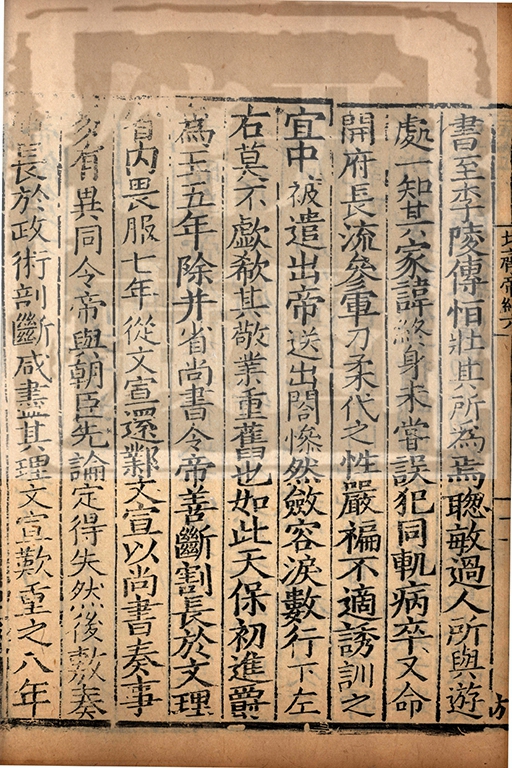 書至李陵傳恒壯其所為焉聰敏過人所與遊
處一知其家諱終身未嘗誤犯同軌病卒又命
開府長流參軍刀柔代之性嚴褊不適誘訓之
宜中被遣出帝送出閤慘然斂容淚數行下左
右莫不歔欷其敬業重舊也如此天保初進爵
為王五年除并省尚書令帝善斷割長於文理
省內畏服七年從文宣還鄴文宣以尚書奏事
多有異同令帝與朝臣先論定得失然後敷奏
帝長於政術剖斷咸盡其理文宣歎重之八年
北齊帝紀六
一
方